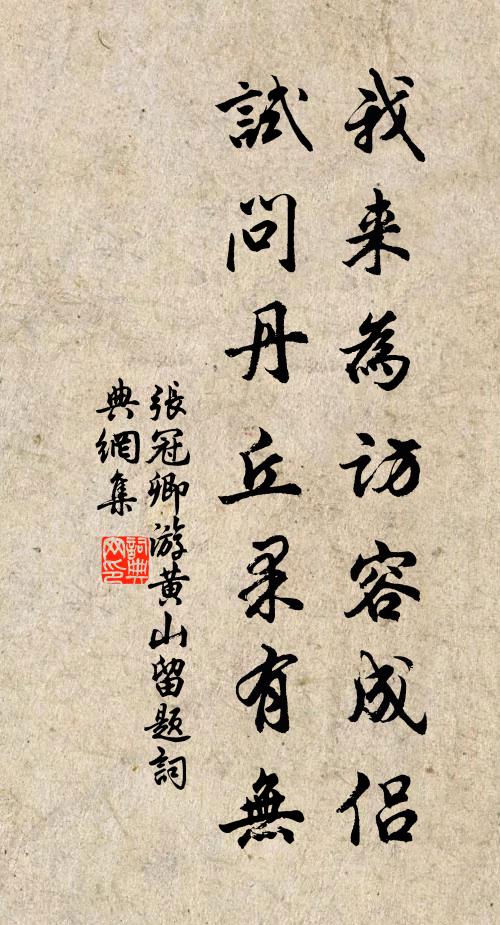 我来為訪容成侶
試問丹丘果有無
張冠卿游黄山留題詞
典網集
詞典
网印